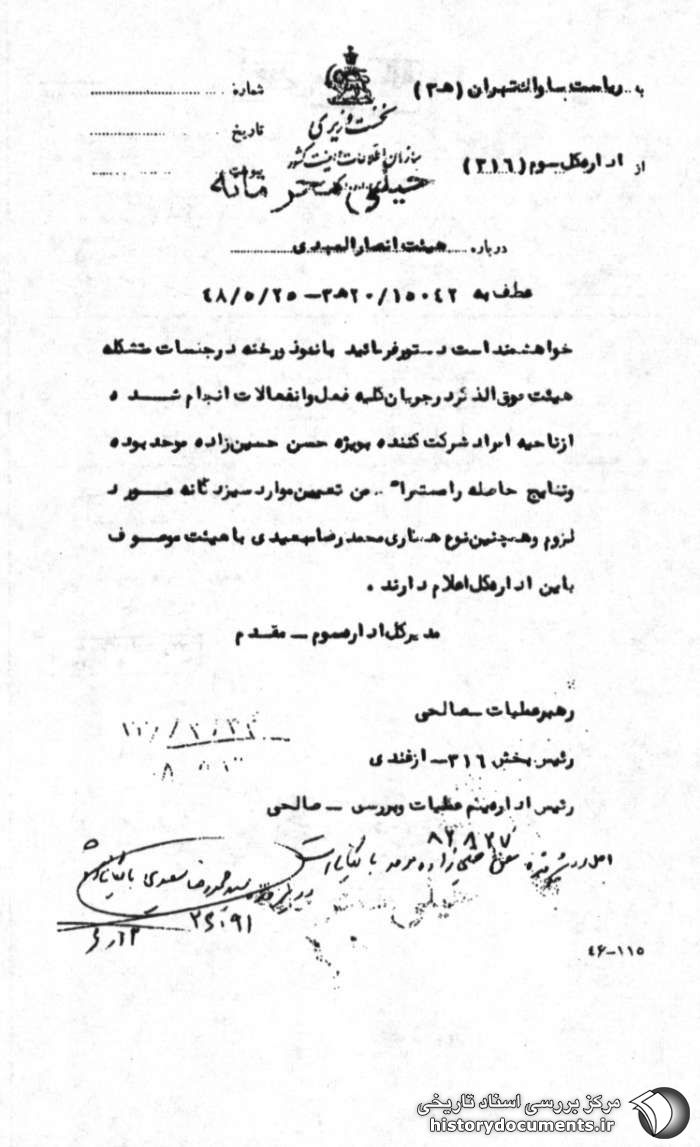 به ریاست ساواک تهران (ه‍ ۳) شماره
نخست وزیری
تاریخ
سازمان اطلاعات و امنیت کشور
از اداره کل سوم (۳۱۶) پیوست
خیلی محرمانه
درباره هیئت انصارالمهدی
عطف به ۱۵۰۴۲/۲۰ه‍۳-۴۸/۵/۲۵
خواهشمند است دستور فرمائید با نفوذ و رخنه در جلسات متشکله
هیئت فوق الذکر در جریان کلیه فعل و انفعالات انجام شده
از ناحیه افراد شرکت کننده بویژه حسن حسین زاده موحد بوده
و نتایج حاصله را مستمرا" ضمن تعیین موارد سیزدگانه مورد
لزوم و همچنین نوع همکاری محمدرضا سعیدی با هیئت موصوف
باین اداره کل اعلام دارند .
مدیرکل اداره سوم - مقدم
رهبر عملیات - صالحی
رئیس بخش ۳۱۶- ازغندی
رئیس اداره یکم عملیات و بررسی - صالحی
۸۲۸۲۷
اصل در پرونده حسن حسین زاده موحد بایگانی است
سید محمدرضا سعیدی بایگانی شود
۲۶۰۹۱
۴۶-۱۱۵
مرکز بررسی اسناد تاریخی
historydocuments.ir